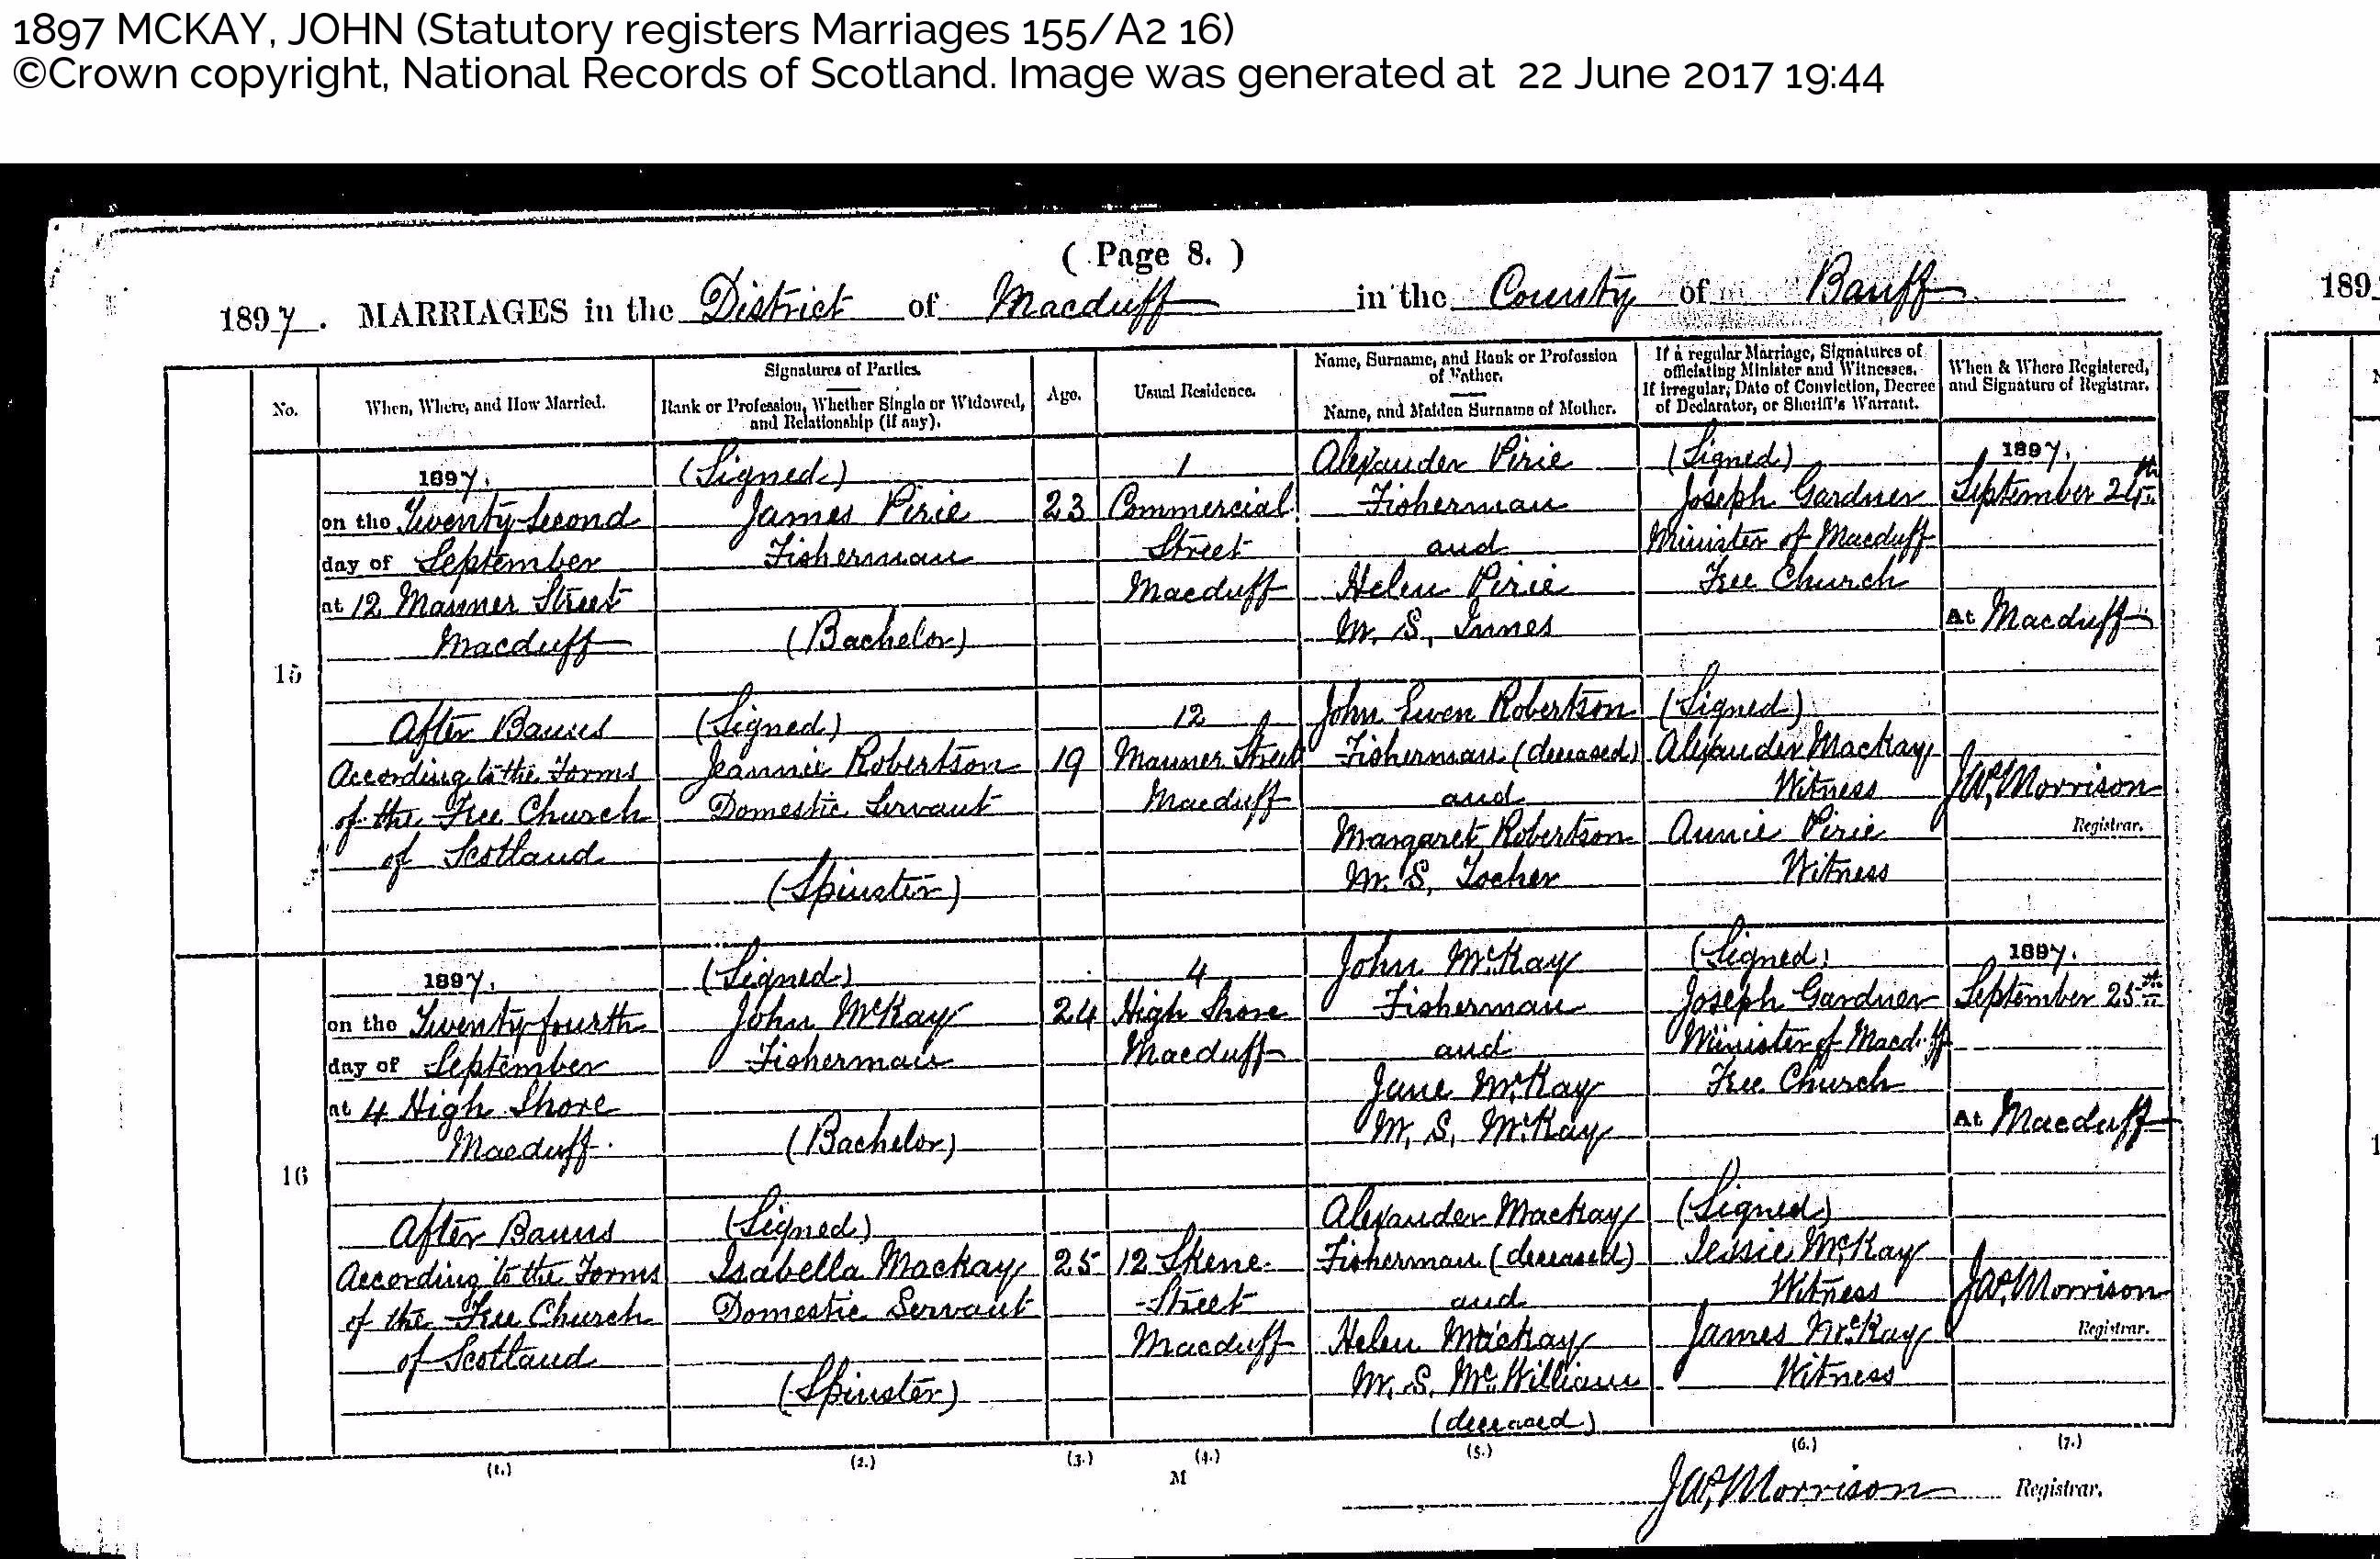 1897 MCKAY, JOHN (Statutory registers Marriages 155/A2 16)
©Crown copyright, National Records of Scotland. Image was generated at 22 June 2017 19:44
( Page 8. )
1897. MARRIAGES in the District of Macduff in the County of Banff
189
No.
When, Where, and How Married.
Signatures of Parties.
Rank or Profession, Whether Single or Widowed,
and Relationship (if any).
Age.
Usual Residence.
Name, Surname, and Rank or Profession
of Father.
Name, and Maiden Surname of Mother.
If a regular Marriage, Signatures of
officiating Minister and Witnesses.
If irregular, Date of Conviction, Decree
of Declarator, or Sheriff's Warrant.
When & Where Registered,
and Signature of Registrar.
15
1897.
on the Twenty-Second
day of September
at 12 Manner Street
Macduff
After Banns
According to the Forms
of the Free Church
of Scotland
(Signed)
James Pirie
Fisherman
(Bachelor)
(Signed)
Jeannie Robertson
Domestic Servant
(Spinster)
23
19
1
Commercial
Street
Macduff
12
Manner Street
Macduff
Alexander Pirie
Fisherman
and
Helen Pirie
M. S. Innes
John Ewen Robertson
Fisherman (deceased)
and
Margaret Robertson
M. S. Locher
(Signed)
Joseph Gardner
Minister of Macduff
Free Church
(Signed)
Alexander Mackay
Witness
Annie Pirie
Witness
1897.
September 24th
At Macduff
Morrison
Registrar.
16
1897.
on the Twenty-fourth
day of September
at 4 High Shore
Macduff.
After Banns
According to the Forms
of the Free Church
of Scotland
(Signed)
John McKay
Fisherman
(Bachelor)
(Signed)
Isabella Mackay
Domestic Servant
(Spinster)
24
25
4
High Shore
Macduff
12 Skene
Street
Macduff
John McKay
Fisherman
and
Jane McKay
M. S. McKay
Alexander Mackay
Fisherman (deceased)
and
Helen Mackay
M. S. McWilliam
(deceased)
(Signed)
Joseph Gardner
Minister of Macduff
Free Church
(Signed)
Jessie McKay
Witness
James McKay
Witness
1897.
September 25th
At Macduff
Morrison
Registrar.
(1.) (2.) (3.) (4.) (5.) (6.) (7.)
M
Morrison Registrar.